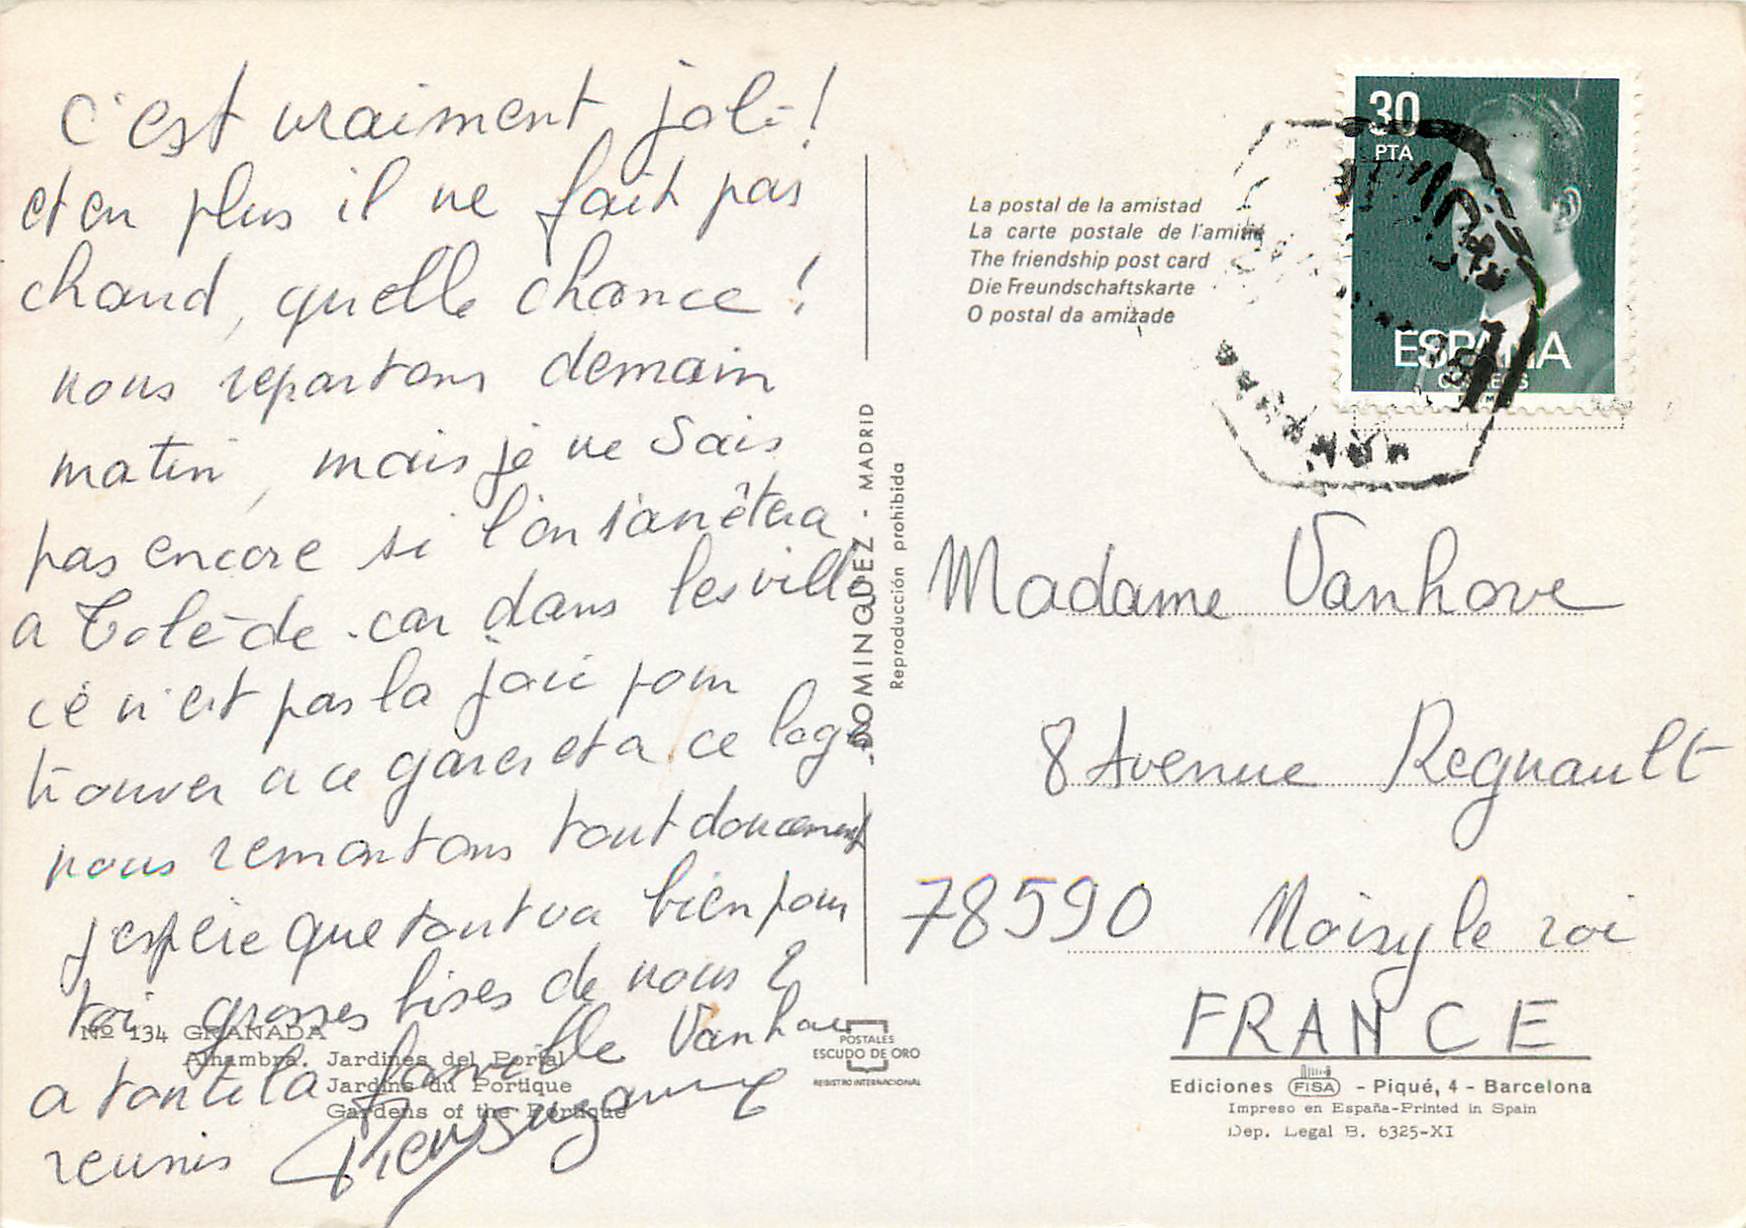 C'est vraiment joli !
et en plus il ne fait pas
chaud, quelle chance !
nous repartons demain
matin, mais je ne sais
pas encore si l'on s'arrêtera
a Tolède. car dans les villes
ce n'est pas la joie pour
trouver a ce garer et a ce loger
nous remontons tout doucement
j'espère que tout va bien pour
toi grosses bises de nous 2
a toute la famille Vanhove
reunis
Nº 134 GRANADA
Alhambra. Jardines del Portal
Jardins du Portique
Gardens of the Portique
DOMINGUEZ - MADRID
Reproducción prohibida
POSTALES
ESCUDO DE ORO
REGISTRO INTERNACIONAL
La postal de la amistad
La carte postale de l'amitié
The friendship post card
Die Freundschaftskarte
O postal da amizade
30
PTA
ESPAÑA
CORREOS
Madame Vanhove
8 Avenue Regnault
78590 Noisy le roi
FRANCE
Ediciones FISA - Piqué, 4 - Barcelona
Impreso en España-Printed in Spain
Dep. Legal B. 6325-XI